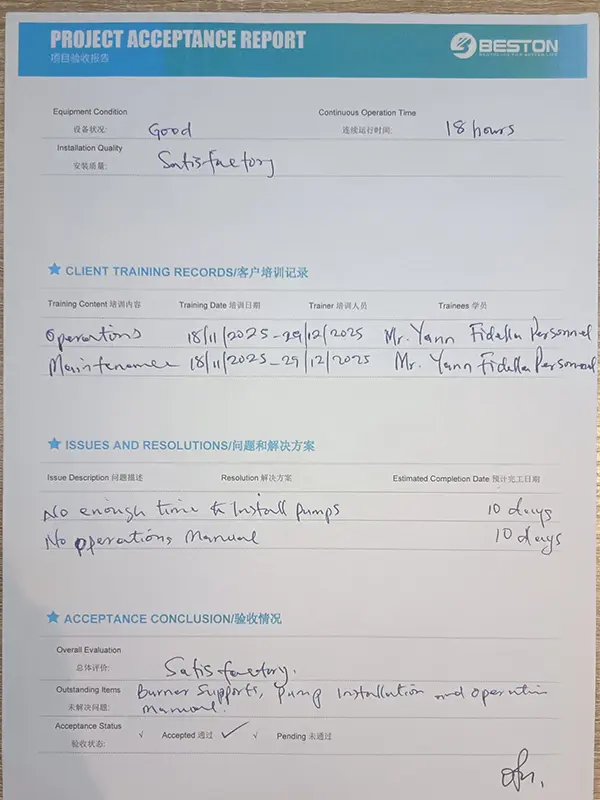 PROJECT ACCEPTANCE REPORT
项目验收报告
BESTON
Equipment Condition
设备状况: Good
Continuous Operation Time
连续运行时间: 18 hours
Installation Quality
安装质量: Satisfactory
★ CLIENT TRAINING RECORDS/客户培训记录
Training Content 培训内容 Training Date 培训日期 Trainer 培训人员 Trainees 学员
Operations 18/11/2025-29/12/2025 Mr. Yann Fidella Personnel
Maintenance 18/11/2025-29/12/2025 Mr. Yann Fidella Personnel
★ ISSUES AND RESOLUTIONS/问题和解决方案
Issue Description 问题描述 Resolution 解决方案 Estimated Completion Date 预计完工日期
No enough time to Install pumps 10 days
No operations Manual 10 days
★ ACCEPTANCE CONCLUSION/验收情况
Overall Evaluation
总体评价: Satisfactory.
Outstanding Items
未解决问题: Burner Supports, pump installation and operation manual.
Acceptance Status
验收状态: √ Accepted 通过 ✓ √ Pending 未通过